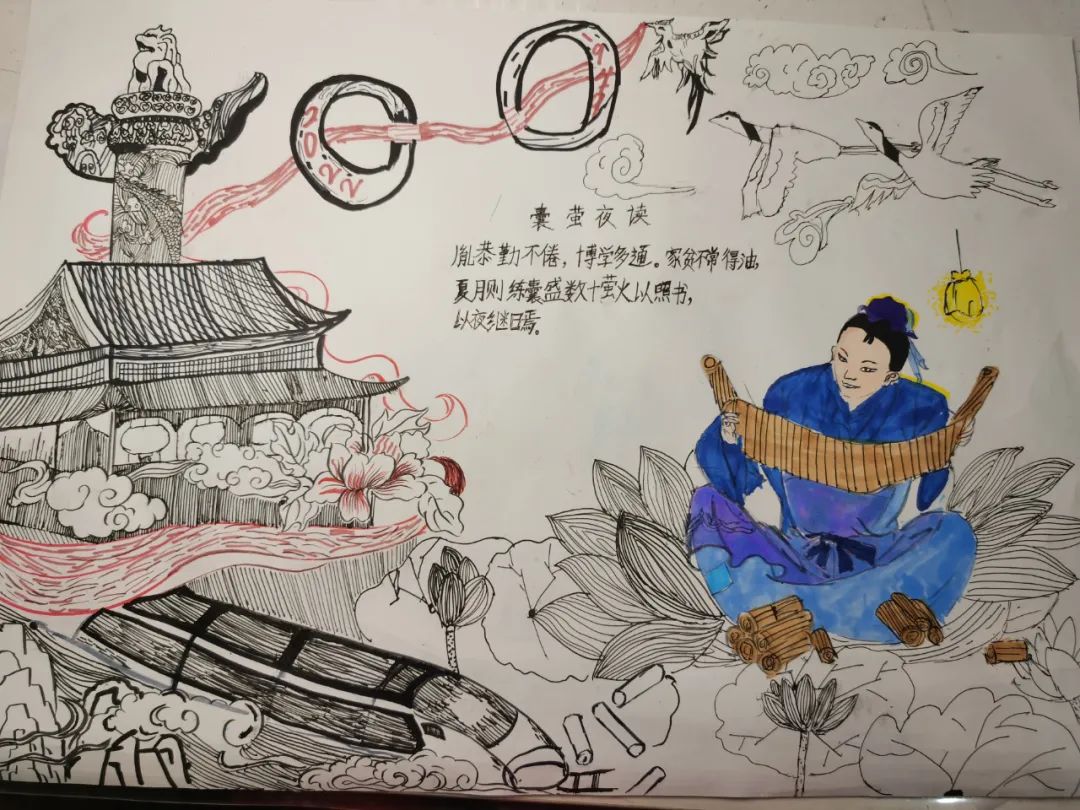 2022
1977
囊萤夜读
胤恭勤不倦，博学多通。家贫不常得油，
夏月则练囊盛数十萤火以照书，
以夜继日焉。